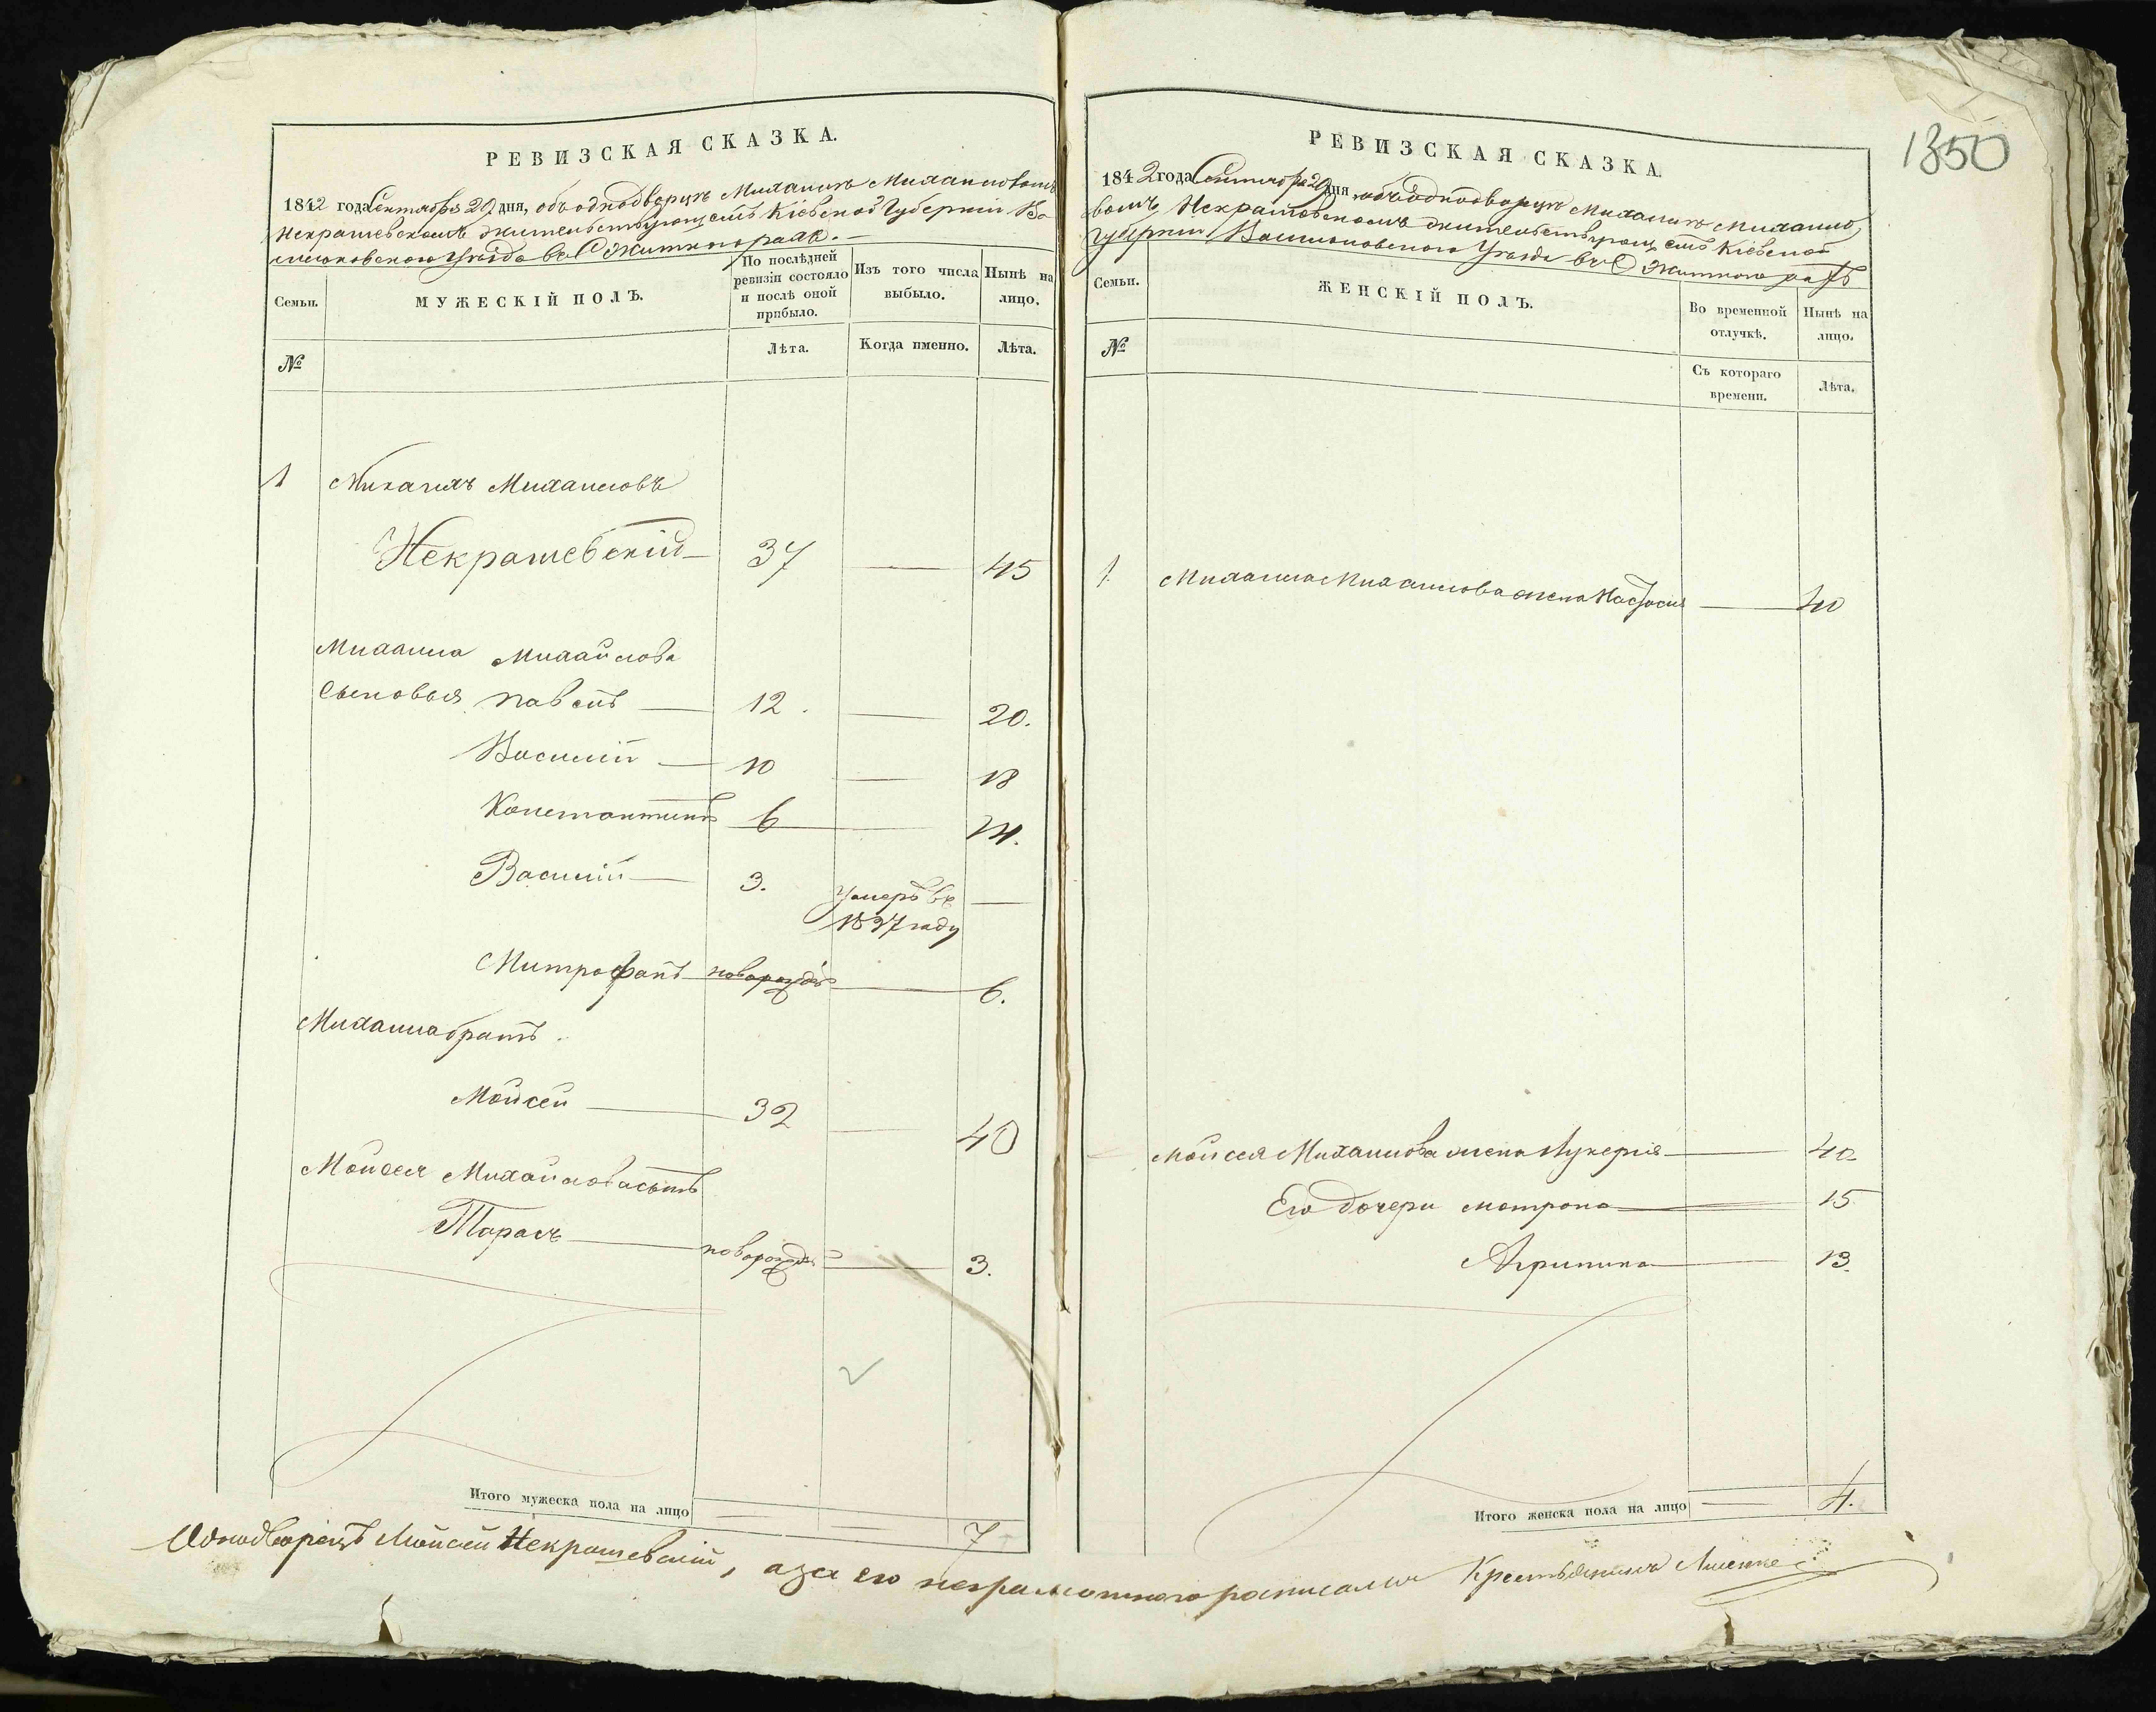 РЕВИЗСКАЯ СКАЗКА.
1842 года Сентября 29 дня, объ однодворцѣ Михаилѣ Михайловомъ
Некрашевскомъ жительствующемъ Кіевской Губерніи Ва
сильковскаго Уѣзда в С. Житныхгорахъ.
Семьи.
МУЖЕСКІЙ ПОЛЪ.
По послѣдней ревизіи состояло и послѣ оной прибыло.
Изъ того числа выбыло.
Нынѣ на лицо.
№
Лѣта.
Когда именно.
Лѣта.
1 Михаилъ Михаиловъ
Некрашевскій 37 — 45
Михаила Михайлова
Сыновья Павелъ — 12. — 20.
Василій — 10 — 18
Константинъ 6 — 14.
Василій — 3. Умеръ въ —
1837 году
Митрофанъ новорожд — 6.
Михаила братъ.
Мойсей — 32 — 40
Мойсея Михайлова сынъ
Тарасъ — новорожд — 3.
Итого мужеска пола на лицо
7
1350
РЕВИЗСКАЯ СКАЗКА.
1842 года Сентября 29 дня объ однодворцѣ Михаилѣ Михаило
вомъ Некрашевскомъ жительствующемъ Кіевской
Губерніи Васильковскаго Уѣзда в С Житного рахъ
Семьи.
ЖЕНСКІЙ ПОЛЪ.
Во временной отлучкѣ.
Нынѣ на лицо.
№
Съ котораго времени.
Лѣта.
1. Михаила Михаилова жена — 40
Мойсея Михаилова жена Лукерія — 40
Его дочери Матрона — 15
Агрипина — 13.
Итого женска пола на лицо — 4.
Однодворецъ Мойсей Некрашевскій, а за его неграмотного росписался Крестьянинъ